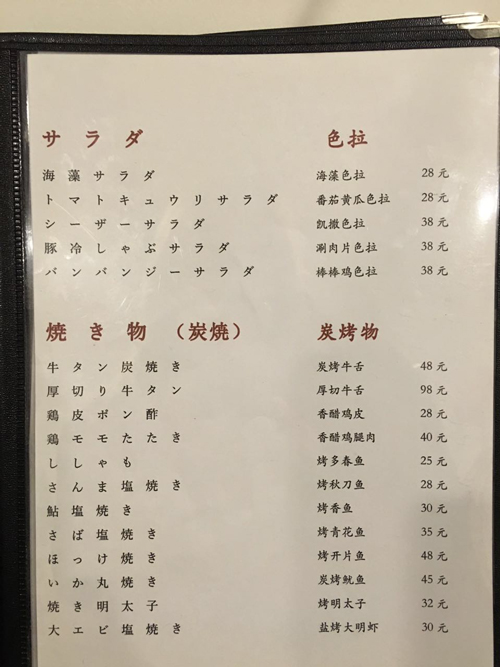 サラダ 色拉
海藻サラダ 海藻色拉 28 元
トマトキュウリサラダ 番茄黄瓜色拉 28 元
シーザーサラダ 凯撒色拉 38 元
豚冷しゃぶサラダ 涮肉片色拉 38 元
バンバンジーサラダ 棒棒鸡色拉 38 元
焼き物（炭焼） 炭烤物
牛タン炭焼き 炭烤牛舌 48 元
厚切り牛タン 厚切牛舌 98 元
鶏皮ポン酢 香醋鸡皮 28 元
鶏モモたたき 香醋鸡腿肉 40 元
ししゃも 烤多春鱼 25 元
さんま塩焼き 烤秋刀鱼 28 元
鮎塩焼き 烤香鱼 30 元
さば塩焼き 烤青花鱼 35 元
ほっけ焼き 烤开片鱼 48 元
いか丸焼き 炭烤鱿鱼 45 元
焼き明太子 烤明太子 32 元
大エビ塩焼き 盐烤大明虾 30 元